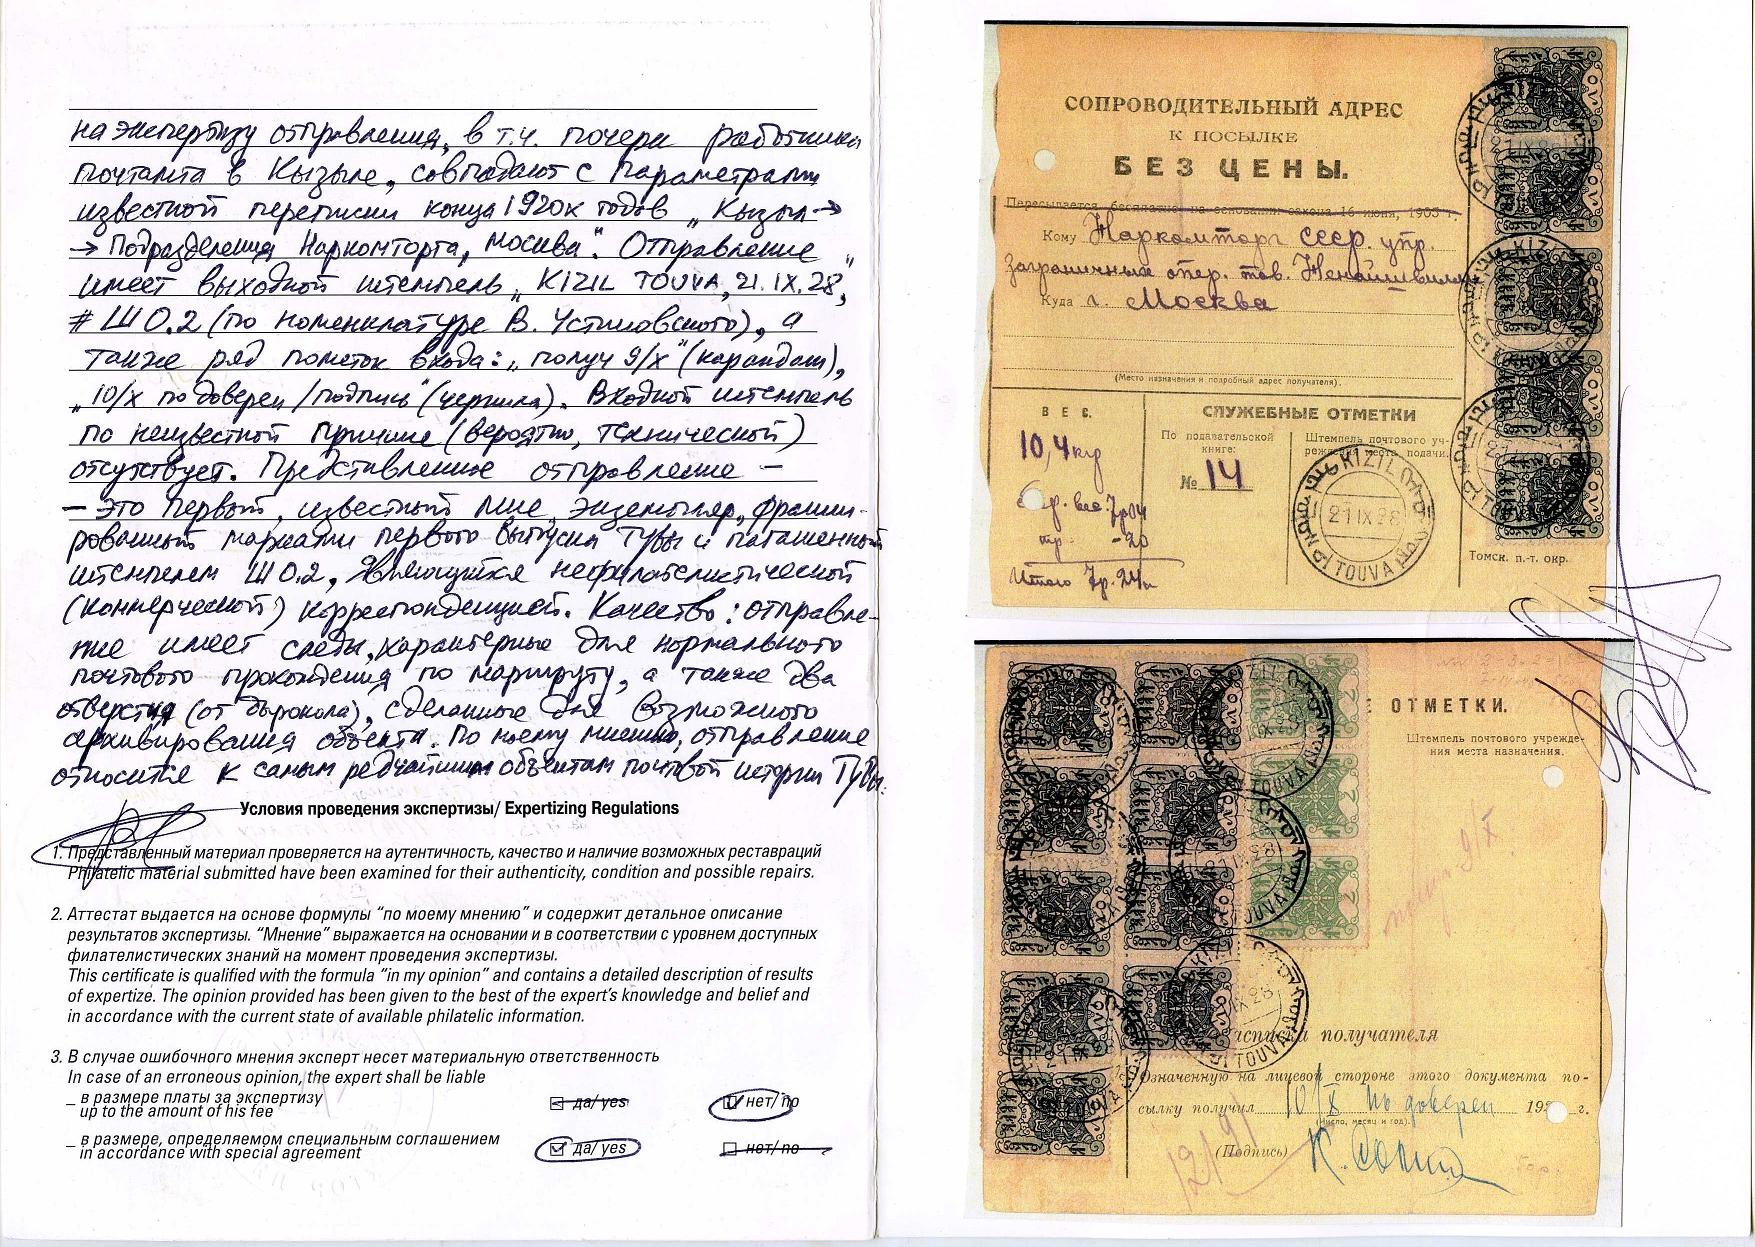 на экспертизу отправления, в т.ч. почерк работника
почтамта в Кызыле, совпадают с параметрами
известной переписки конца 1920х годов „Кызыл→
→ Подразделения Наркомторга, Москва". Отправление
имеет выходной штемпель „KIZIL TOUVA, 21.IX.28",
# ШО.2 (по номенклатуре В. Устиновского), а
также ряд пометок входа: „получ 9/X" (карандаш),
„10/X по доверен /подпись" (чернила). Входной штемпель
по неизвестной причине (вероятно, технической)
отсутствует. Представленное отправление —
— это первый, известный мне, экземпляр, франки-
рованный марками первого выпуска Тувы и гашенный
штемпелем ШО.2, являющийся нефилателистической
(коммерческой) корреспонденцией. Качество: отправле-
ние имеет следы, характерные для нормального
почтового прохождения по маршруту, а также два
отверстия (от дырокола), сделанные для возможного
архивирования объекта. По моему мнению, отправление
относится к самым редчайшим объектам почтовой истории Тувы.
Условия проведения экспертизы/ Expertizing Regulations
1. Представленный материал проверяется на аутентичность, качество и наличие возможных реставраций
Philatelic material submitted have been examined for their authenticity, condition and possible repairs.
2. Аттестат выдается на основе формулы “по моему мнению” и содержит детальное описание
результатов экспертизы. “Мнение” выражается на основании и в соответствии с уровнем доступных
филателистических знаний на момент проведения экспертизы.
This certificate is qualified with the formula “in my opinion” and contains a detailed description of results
of expertize. The opinion provided has been given to the best of the expert’s knowledge and belief and
in accordance with the current state of available philatelic information.
3. В случае ошибочного мнения эксперт несет материальную ответственность
In case of an erroneous opinion, the expert shall be liable
_ в размере платы за экспертизу
up to the amount of his fee
да/ yes нет/ no
_ в размере, определяемом специальным соглашением
in accordance with special agreement
да/ yes нет/ no
СОПРОВОДИТЕЛЬНЫЙ АДРЕС
К ПОСЫЛКЕ
БЕЗ ЦЕНЫ.
Пересылается бесплатно на основании закона 16 июня, 1905 г.
Кому Наркомторг СССР. упр.
заграничных опер. тов.
Куда г. Москва
(Место назначения и подробный адрес получателя).
ВЕС.
10,4 кг
СЛУЖЕБНЫЕ ОТМЕТКИ
По подавательской
книге:
№ 14
Штемпель почтового уч-
реждения места подачи.
KIZIL
21 IX 28
TOUVA
7р04
-20
Итого 7р. 24к
Томск. п.-т. окр.
Е ОТМЕТКИ.
Штемпель почтового учрежде-
ния места назначения.
KIZIL
TOUVA
получ 9/X
асписка получателя
Означенную на лицевой стороне этого документа по-
сылку получил 10/X по доверен 192 г.
(Число, месяц и год).
(Подпись)